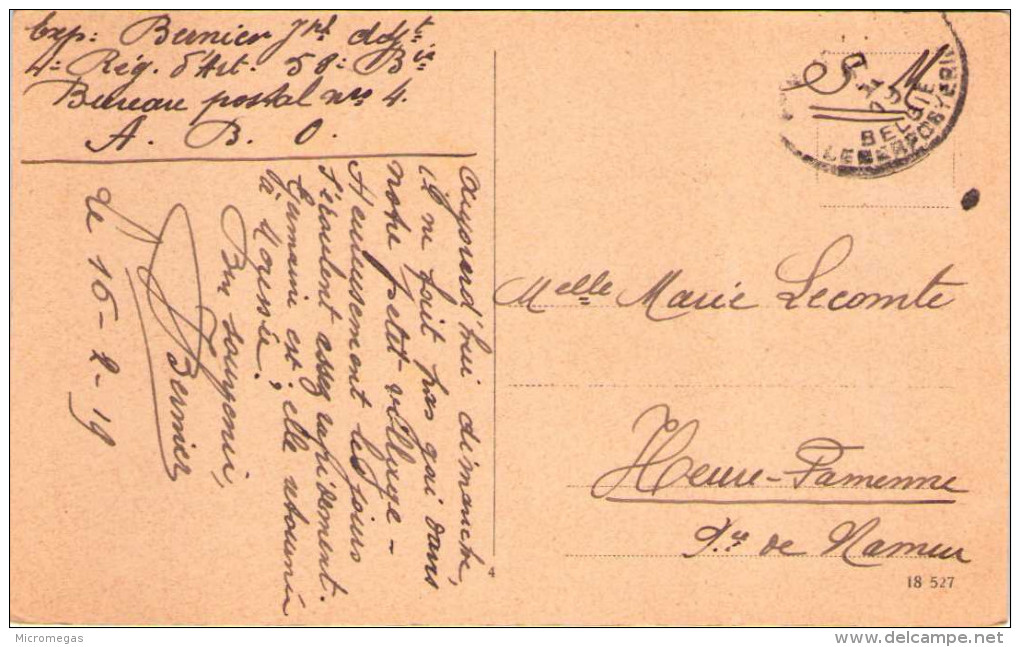 Exp: Bernier Jph
4e Rég. d'Art. 58e Bie
Bureau postal nro 4.
A. B. O.
Aujourd'hui dimanche,
il ne fait pas gai dans
notre petit village –
Heureusement les jours
s'écoulent assez rapidement.
Germaine est-elle retournée
à Houssée?
Bon souvenir,
Bernier
le 16-2-19
S. M.
BELGIE
LEGERPOSTERIJ
Melle Marie Lecomte
Heure-Famenne
Pce de Namur
4
18 527
Micromegas
http://www.delcampe.net